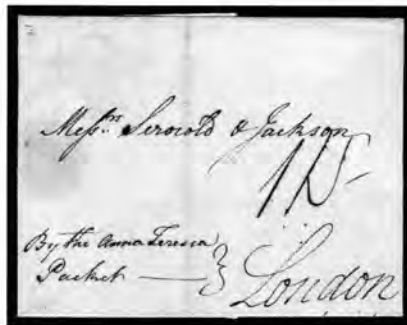 Messrs. Serocold & Jackson
By the Anna Teresa
Packet
London